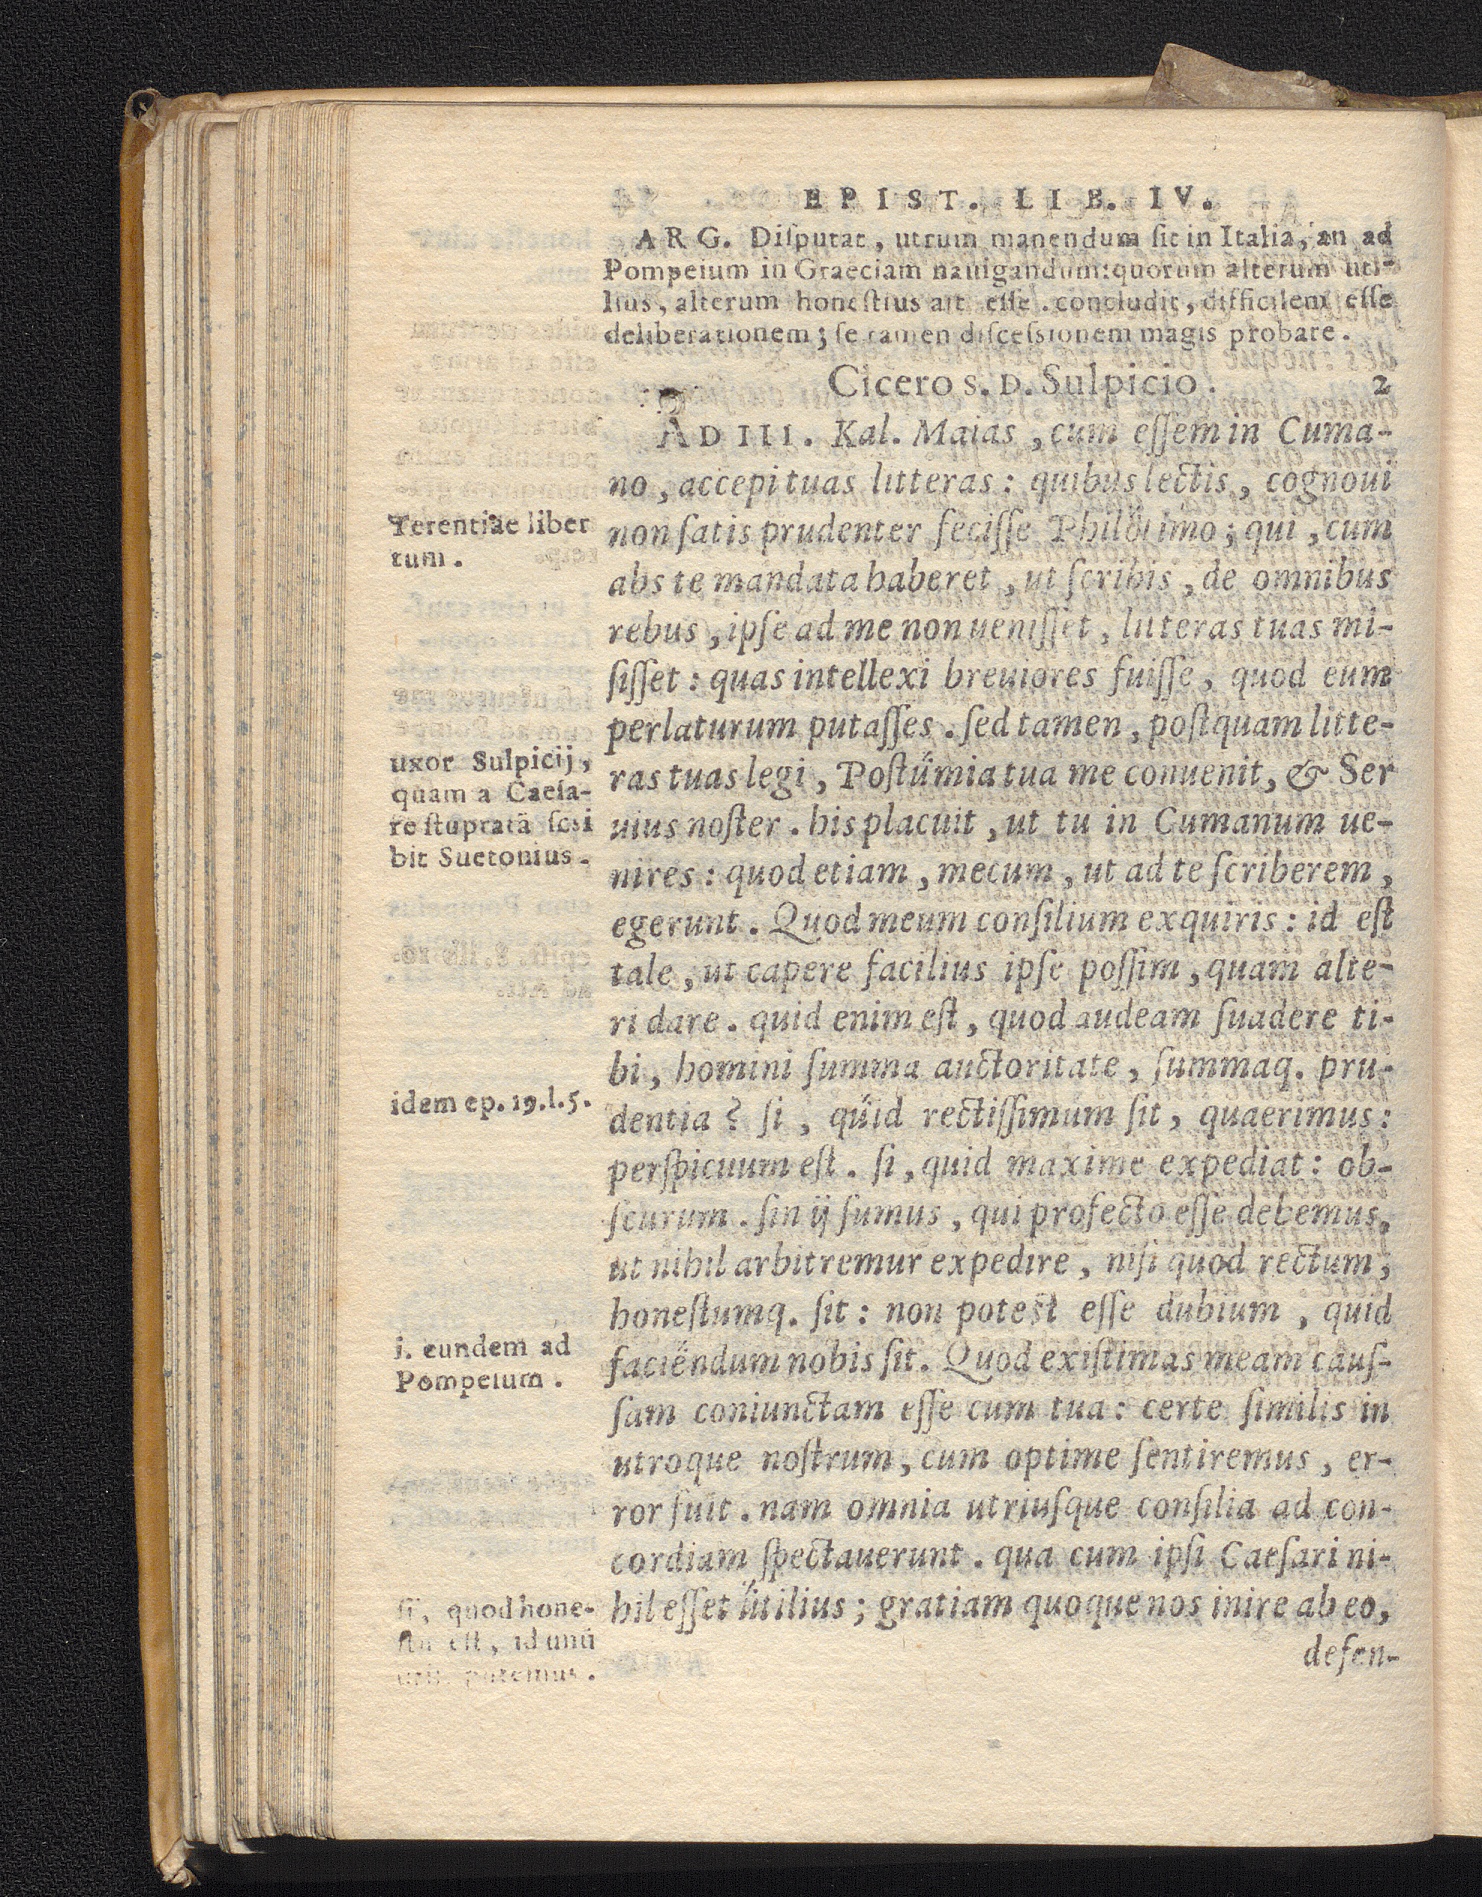 EPIST. LIB. IV.
ARG. Diſputat, utrum manendum ſit in Italia, an ad
Pompeium in Graeciam nauigandum: quorum alterum uti-
lius, alterum honeſtius ait eſſe. concludit, difficilem eſſe
deliberationem; ſe tamen diſceſsionem magis probare.
Cicero S. D. Sulpicio. 2
AD III. Kal. Maias, cum eſſem in Cuma-
no, accepi tuas litteras: quibus lectis, cognoui
non ſatis prudenter feciſſe Philötimo; qui, cum
abs te mandata haberet, ut ſcribis, de omnibus
rebus, ipſe ad me non ueniſſet, litteras tuas mi-
ſiſſet: quas intellexi breuiores fuiſſe, quod eum
perlaturum putaſſes. ſed tamen, poſtquam litte-
ras tuas legi, Poſtümia tua me conuenit, & Ser
uius noſter. his placuit, ut tu in Cumanum ue-
nires: quod etiam, mecum, ut ad te ſcriberem,
egerunt. Quod meum conſilium exquiris: id eſt
tale, ut capere facilius ipſe poſſim, quam alte-
ri dare. quid enim eſt, quod audeam ſuadere ti-
bi, homini ſumma auctoritate, ſummaq. pru-
dentia? ſi, qüid rectiſſimum ſit, quaerimus:
perſpicuum eſt. ſi, quid maxime expediat: ob-
ſcurum. ſin ij ſumus, qui profecto eſſe debemus,
ut nihil arbitremur expedire, niſi quod rectum,
honeſtumq. ſit: non poteſt eſſe dubium, quid
faciëndum nobis ſit. Quod exiſtimas meam cauſ-
ſam coniunctam eſſe cum tua: certe ſimilis in
utroque noſtrum, cum optime ſentiremus, er-
ror fuit. nam omnia utriuſque conſilia ad con-
cordiam ſpectauerunt. qua cum ipſi Caeſari ni-
hil eſſet ütilius; gratiam quoque nos inire ab eo,
defen-
Terentiae liber
tum.
uxor Sulpicij,
quam a Caeſa-
re ſtupratã ſcri
bit Suetonius.
idem ep. 19. l. 5.
i. eundem ad
Pompeium.
ſi, quod hone-
eſt, id unũ
putemus.